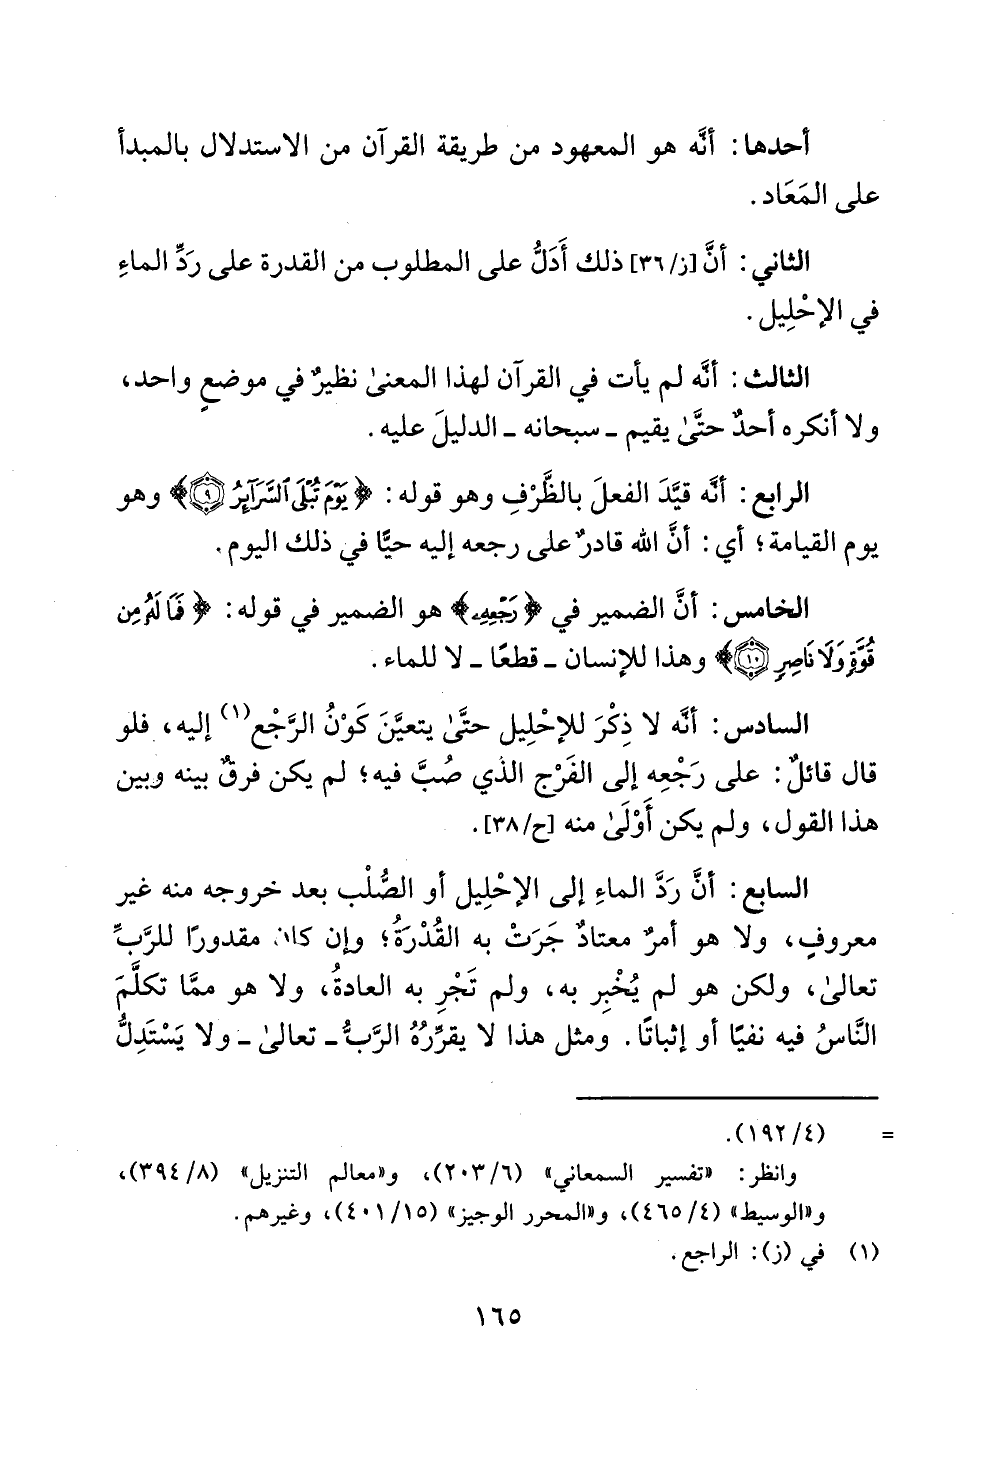 أحدها: أنَّه هو المعهود من طريقة القرآن من الاستدلال بالمبدأ
على المَعَاد.
الثاني: أنَّ [ز/٣٦] ذلك أَدَلُّ على المطلوب من القدرة على رَدِّ الماءِ
في الإحْلِيل.
الثالث: أنَّه لم يأت في القرآن لهذا المعنىٰ نظيرٌ في موضعٍ واحد،
ولا أنكره أحدٌ حتَّىٰ يقيم ـ سبحانه ـ الدليلَ عليه.
الرابع: أنَّه قيَّدَ الفعلَ بالظَّرْفِ وهو قوله: ﴿يَوْمَ تُبْلَى ٱلسَّرَآئِرُ ٩﴾ وهو
يوم القيامة؛ أي: أنَّ الله قادرٌ على رجعه إليه حيًّا في ذلك اليوم.
الخامس: أنَّ الضمير في ﴿رَجْعِهِۦ﴾ هو الضمير في قوله: ﴿فَمَا لَهُۥ مِن
قُوَّةٍ وَلَا نَاصِرٍ ١٠﴾ وهذا للإنسان ـ قطعًا ـ لا للماء.
السادس: أنَّه لا ذِكْرَ للإحْلِيل حتَّىٰ يتعيَّنَ كَوْنُ الرَّجْع(١) إليه، فلو
قال قائلٌ: على رَجْعِه إلى الفَرْج الذي صُبَّ فيه؛ لم يكن فرقٌ بينه وبين
هذا القول، ولم يكن أَوْلَىٰ منه [ح/٣٨].
السابع: أنَّ رَدَّ الماءِ إلى الإحْلِيل أو الصُّلْب بعد خروجه منه غير
معروفٍ، ولا هو أمرٌ معتادٌ جَرَتْ به القُدْرَةُ؛ وإن كان مقدورًا للرَّبِّ
تعالىٰ، ولكن هو لم يُخْبِر به، ولم تَجْرِ به العادةُ، ولا هو ممَّا تكلَّمَ
النَّاسُ فيه نفيًا أو إثباتًا. ومثل هذا لا يقرِّرُهُ الرَّبُّ ـ تعالىٰ ـ ولا يَسْتَدِلُّ
= (٤/١٩٢).
وانظر: «تفسير السمعاني» (٦/٢٠٣)، و«معالم التنزيل» (٨/٣٩٤)،
و«الوسيط» (٤/٤٦٥)، و«المحرر الوجيز» (١٥/٤٠١)، وغيرهم.
(١) في (ز): الراجع.
١٦٥